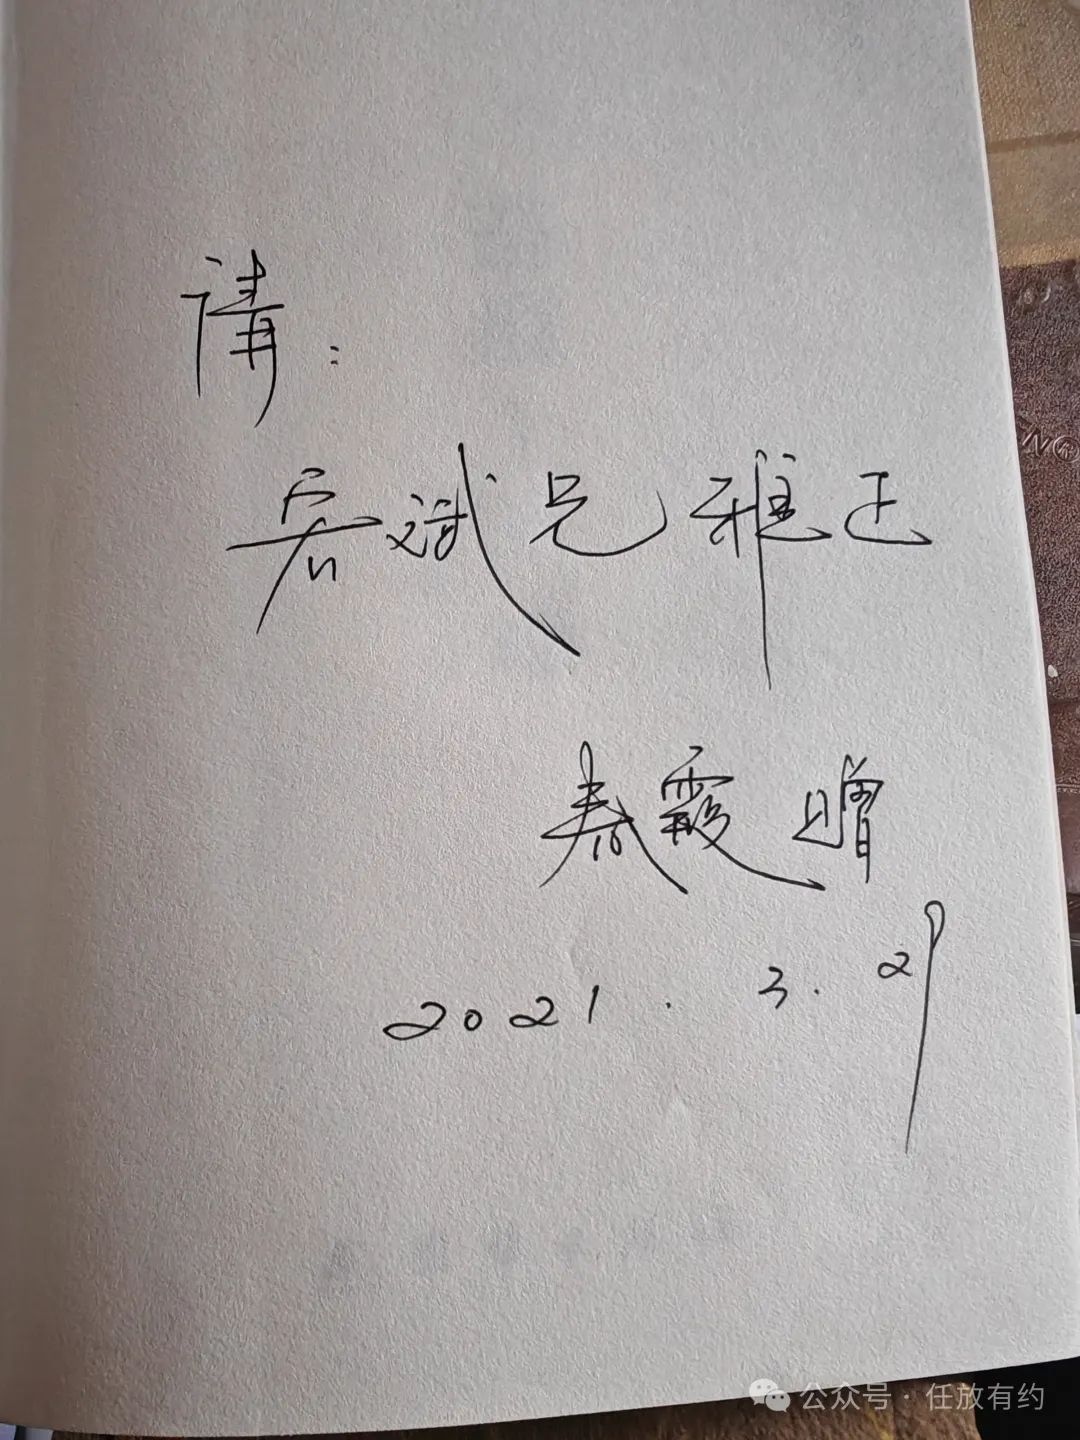 请：
宏斌兄雅正
春霞赠
2021.3.29
公众号·任放有约